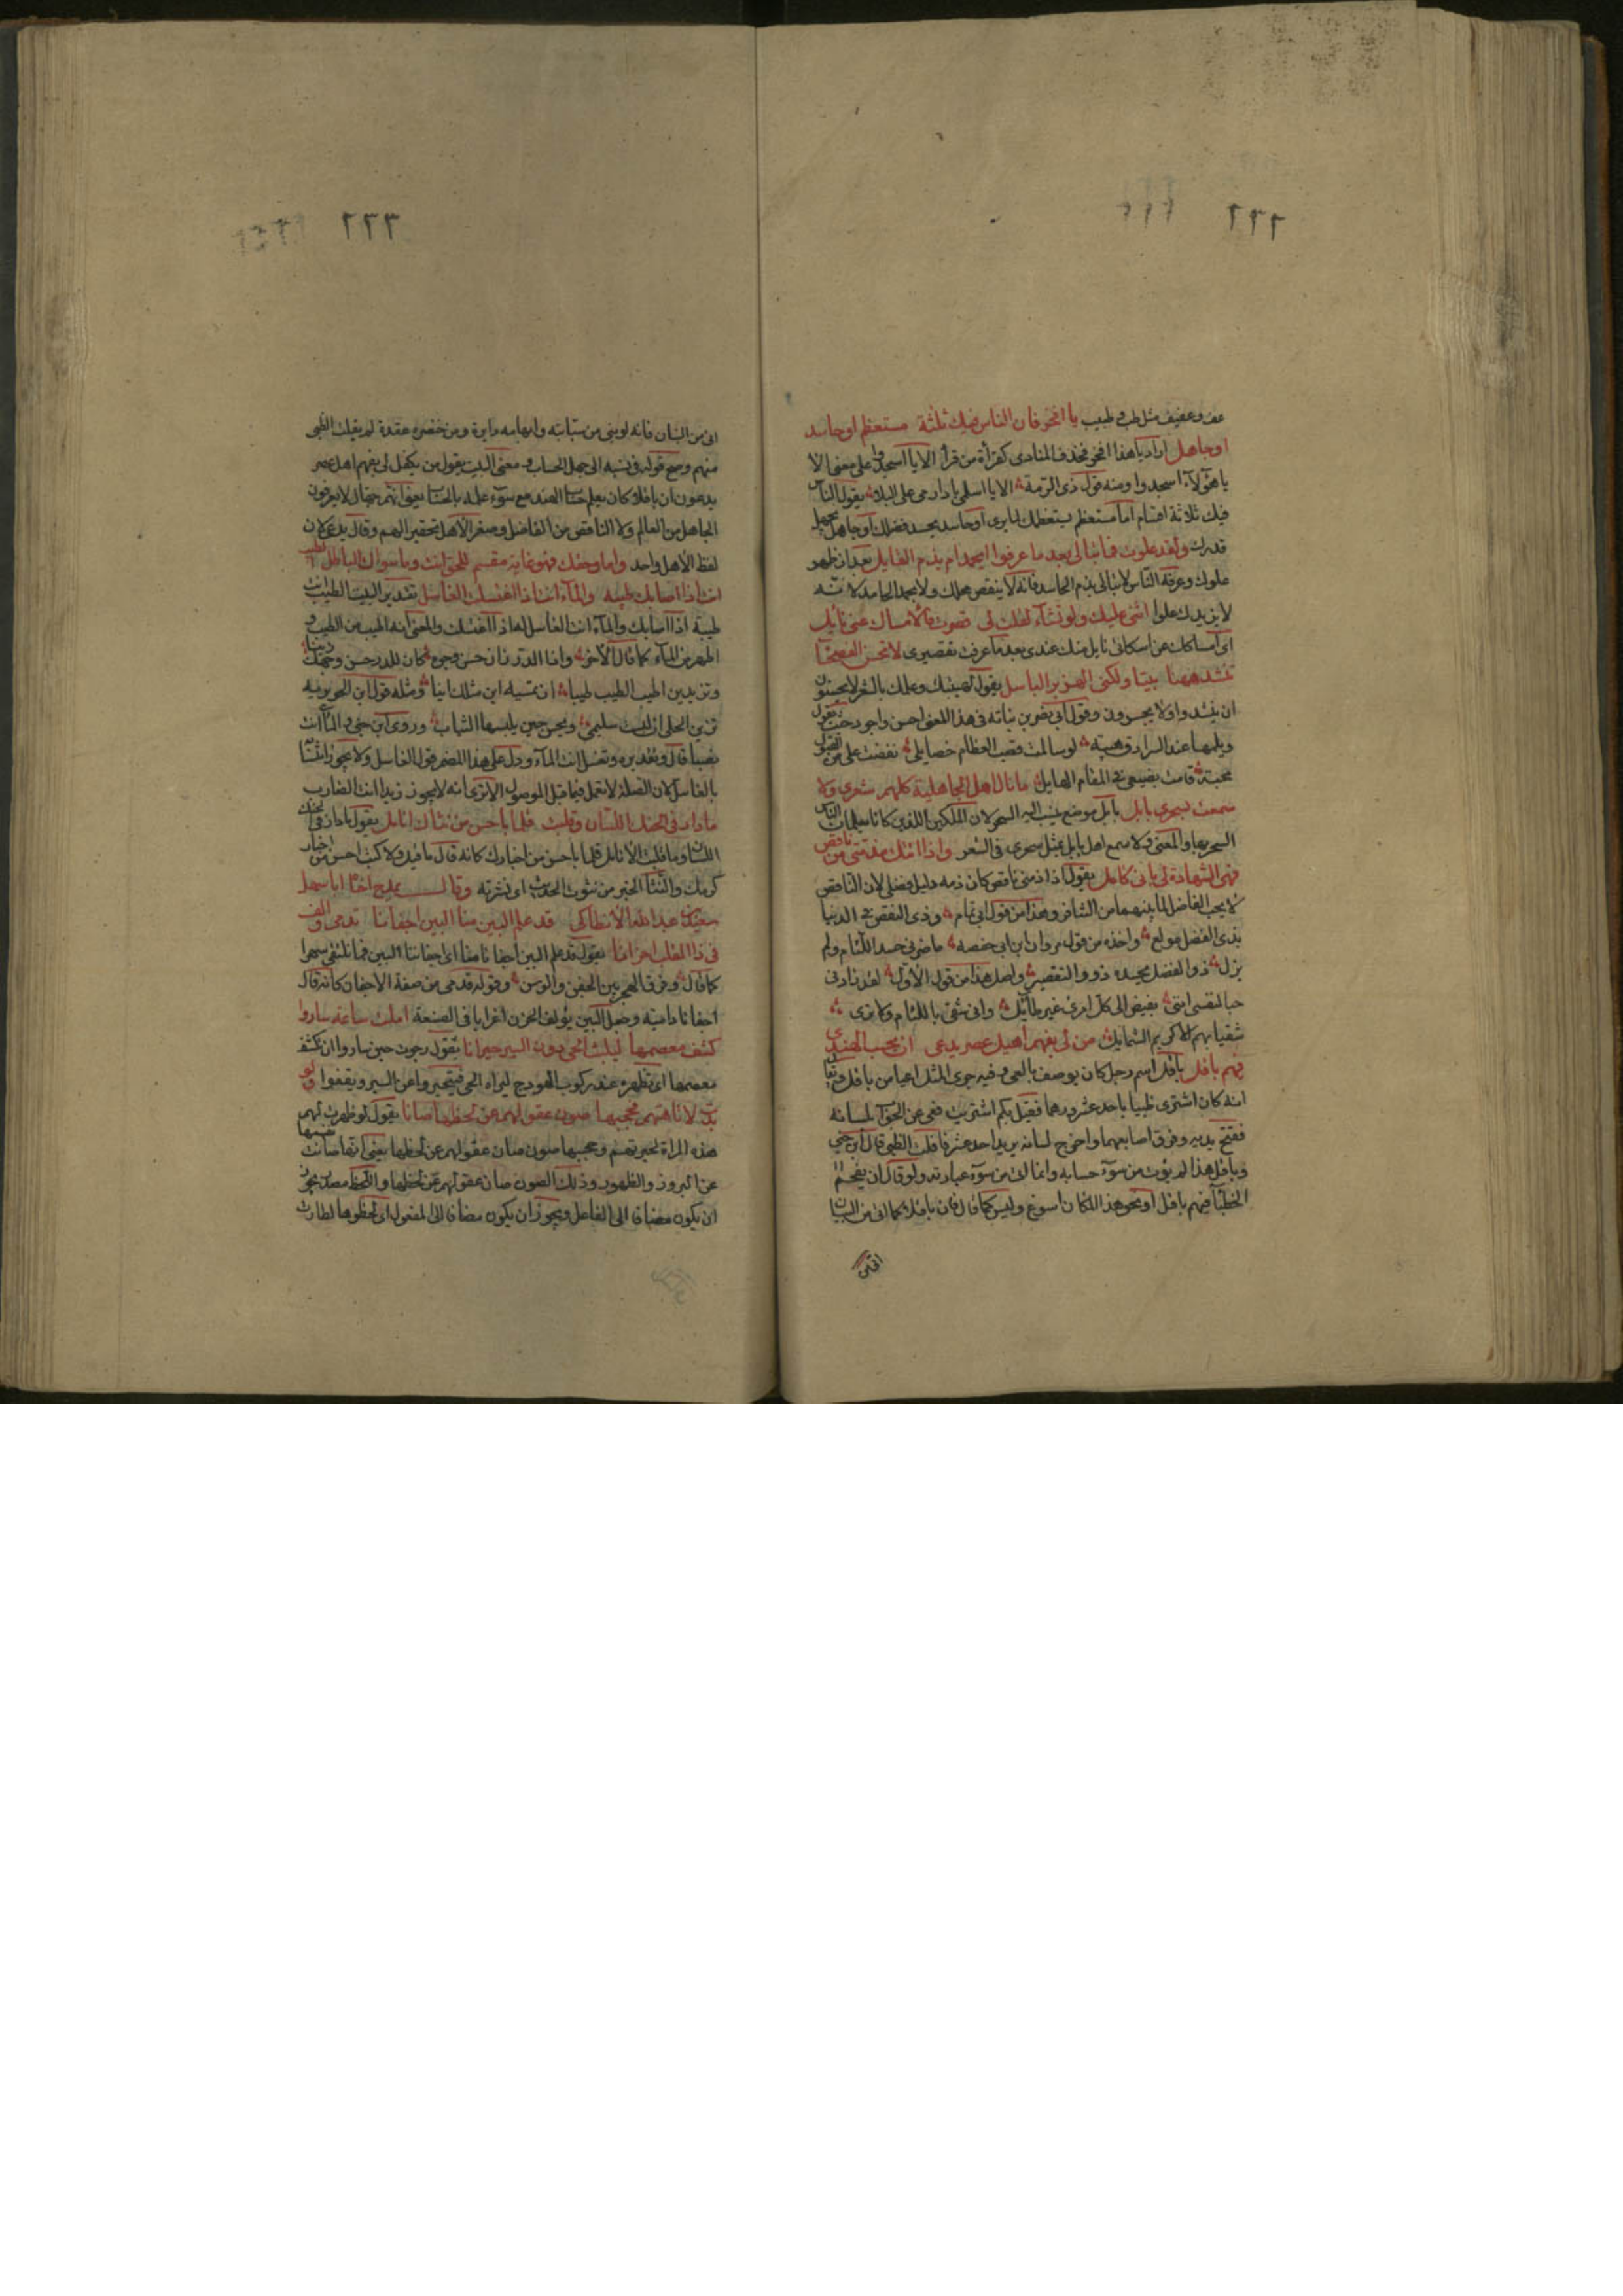 ٢٢٢
عف وعفيف مثل طب وطبيب يا افخر فان الناس فيك ثلثة مستعظم او حاسد
او جاهل اراد يا هذا افخر فحذف المنادى كقرأة من قرأ الا يا اسجدوا على معنى الا
يا هؤلآء اسجدوا ومنه قول ذى الرمة الا يا اسلمى يا دار مى على البلا يقول الناس
فيك ثلاثة اقسام اما مستعظم يستعظمك لما يرى او حاسد يحسد فضلك او جاهل يجهل
قدرك ولقد علوت فما تبالى بعد ما عرفوا ايحمد ام يذم القايل بعد ان ظهر
علوك وعرفه الناس لا تبالى بذم الحاسد فانه لا ينقص محلك ولا بحمد الحامد لانه
لا يزيدك علوا اثنى عليك ولو تشآء لقلت لى قصرت فالامساك عنى نايل
اى امساكك عن اسكاتى نايل منك عندى بعد ما عرفت تقصيرى لا تجسر الفصحآ
تنشد ههنا بيتا ولكنى الهزبر الباسل يقول لهيبتك وعلمك بالشعر لا يجسرون
ان ينشدوا ولا يجسرون وقول ابى نصر بن نباته فى هذا المعنى احسن واجود حيث يقول
ويلمها عند السرادق هيبة لو سالمت قصب العظام خصايلى نفضت على من القبول
محبة قامت بضبعى فى المقام الهايل ما نال اهل الجاهلية كلهم شعرى ولا
سمعت بسحرى بابل بابل موضع ينسب اليه السحر لان الملكين اللذين كانا يعلمان الناس
السحر بها والمعنى ولا سمع اهل بابل بمثل سحرى فى الشعر واذا اتتك مذمتى من ناقص
فهى الشهادة لى بانى كامل يقول اذا ذمنى ناقص كان ذمه دليل فضلى لان الناقص
لا يحب الفاضل لما بينهما من التنافر وهذا من قول ابى تمام وذى النقص فى الدنيا
بذى الفضل مولع واخذه من قول مروان ابن ابى حفصه ما ضرنى حسد اللئام ولم
يزل ذو الفضل يحسده ذوو التقصير واصل هذا من قول الاول لقد زادنى
حبا لنفسى اننى بغيض الى كل امرئ غير طائل وانى شقى باللئام ولا ترى
شقيا بهم الا كريم الشمايل من لى بفهم اهيل عصر يدعى ان يحسب الهندى
فيهم باقل باقل اسم رجل كان يوصف بالعى وفيه جرى المثل اعيا من باقل ويقال
انه كان اشترى ظبيا باحد عشر درهما فقيل بكم اشتريت فعى عن الجواب لسانه
ففتح يديه وفرق اصابعهما واخرج لسانه يريد احد عشر فافلت الظبى قال ابن جنى
وباقل هذا لم يؤت من سوء حسابه وانما اتى من سوء عبارته ولو قال ان يفحم
الخطبا فيهم باقل او نحو هذا لكان اسوغ وليس كما قال فان باقلا كما اتى من البيان
اتى من
٢٢٣
اتى من البنان فانه لو بنى من سبابته وابهامه دايرة ومن خنصره عقدة لم يفلت الظبى
منهم وصح قوله فى نسبه الى جهل الحساب ومعنى البيت يقول من يكفل لى بفهم اهل عصر
يدعون ان باقلا كان يعلم حساب الهند مع سوء علمه بالحساب يعنى انهم جهال لا يعرفون
الجاهل من العالم ولا الناقص من الفاضل وصغر الاهل تحقيرا لهم وقال يدعى لان
لفظ الاهل واحد واما وحقك فهو غاية مقسم للحق انت وما سواك الباطل الطيب
انت اذا اصابك طيبه والمآء انت اذا اغتسلت الغاسل تقدير البيت الطيب انت
طيبة اذا اصابك والمآء انت الغاسل له اذا اغتسلت والمعنى انه اطيب من الطيب و
اطهر من المآء كما قال الآخر واذا الدر زان حسن وجوه كان للدر حسن وجهك زينا
وتزيدين اطيب الطيب طيبا ان تمسيه اين مثلك اينا ومثله قول ابن الجويريه
تزين الحلى ان لبست سليمى ويحسن حين يلبسها الثياب وروى ابن جنى والمآء انت
نصبا قال وتقديره وتغسل انت المآء ودل على هذا المضمر قول الغاسل ولا يجوز انتصابه
بالغاسل لان الصلة لا تعمل فيما قبل الموصول الا ترى انه لا يجوز زيدا انت الضارب
ما دار فى الحنك اللسان وقلبت قلما باحسن من نثاك انامل يقول ما دار فى الحنك
اللسان وما قلبت الانامل قلما باحسن من اخبارك كانه قال ما قيل ولا كتب احسن من اخبار
كرمك والنثا الخبر من نثوت الحديث اى نشرته وقال يمدح اخا ابا سهل
سعيد بن عبد الله الانطاكى قد علم البين منا البين اجفانا تدمى والف
فى ذا القلب احزانا يقول قد علم البين اجفانا منا اى اجفاننا البين فما تلتقى سهرا
كما قال وفرق الهجر بين الجفن والوسن وقوله تدمى من صفة الاجفان كانه قال
اجفانا دامية وجعل البين يؤلف الحزن اغرابا فى الصنعة املت ساعة ساروا
كشف معصمها ليلبث الحى دون السير حيرانا يقول رجوت حين ساروا ان تكشف
معصمها اى تظهره عند ركوب الهودج ليراه الحى فيتحيروا عن السير ويقفوا ولو
بدت لاتاهتهم فحجبها صون عقولهم عن لحظها صانا يقول لو ظهرت لهم
هذه المراة لحيرتهم وحجبها صون صان عقولهم عن لحظها يعنى انها صانت نفسها
عن البروز والظهور وذلك الصون صان عقولهم عن لحظها واللحظ مصدر يجوز
ان يكون مضافا الى الفاعل ويجوز ان يكون مضافا الى المفعول اى لحظوها لطارت